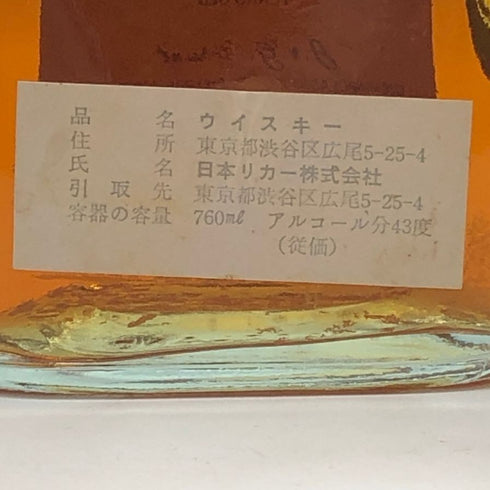 品名 ウイスキー
住所 東京都渋谷区広尾5-25-4
氏名 日本リカー株式会社
引取先 東京都渋谷区広尾5-25-4
容器の容量 760ml アルコール分43度
(従価)